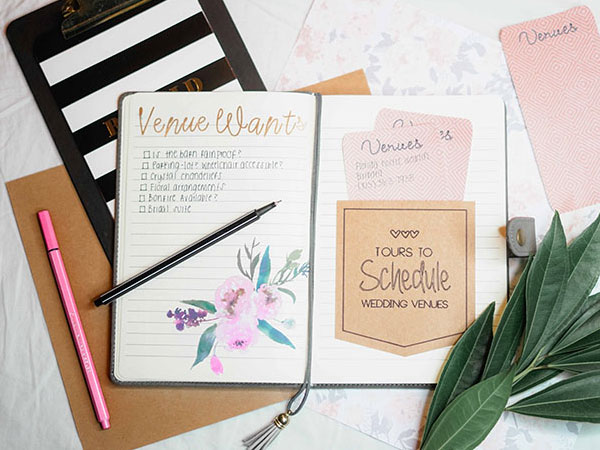 Venue Wants
Is the barn rainproof?
Parking-lot wheelchair accessible?
Crystal chandeliers
Floral arrangements
Bonfire Available?
Bridal suite
Venues
TOURS TO
Schedule
WEDDING VENUES
Venues